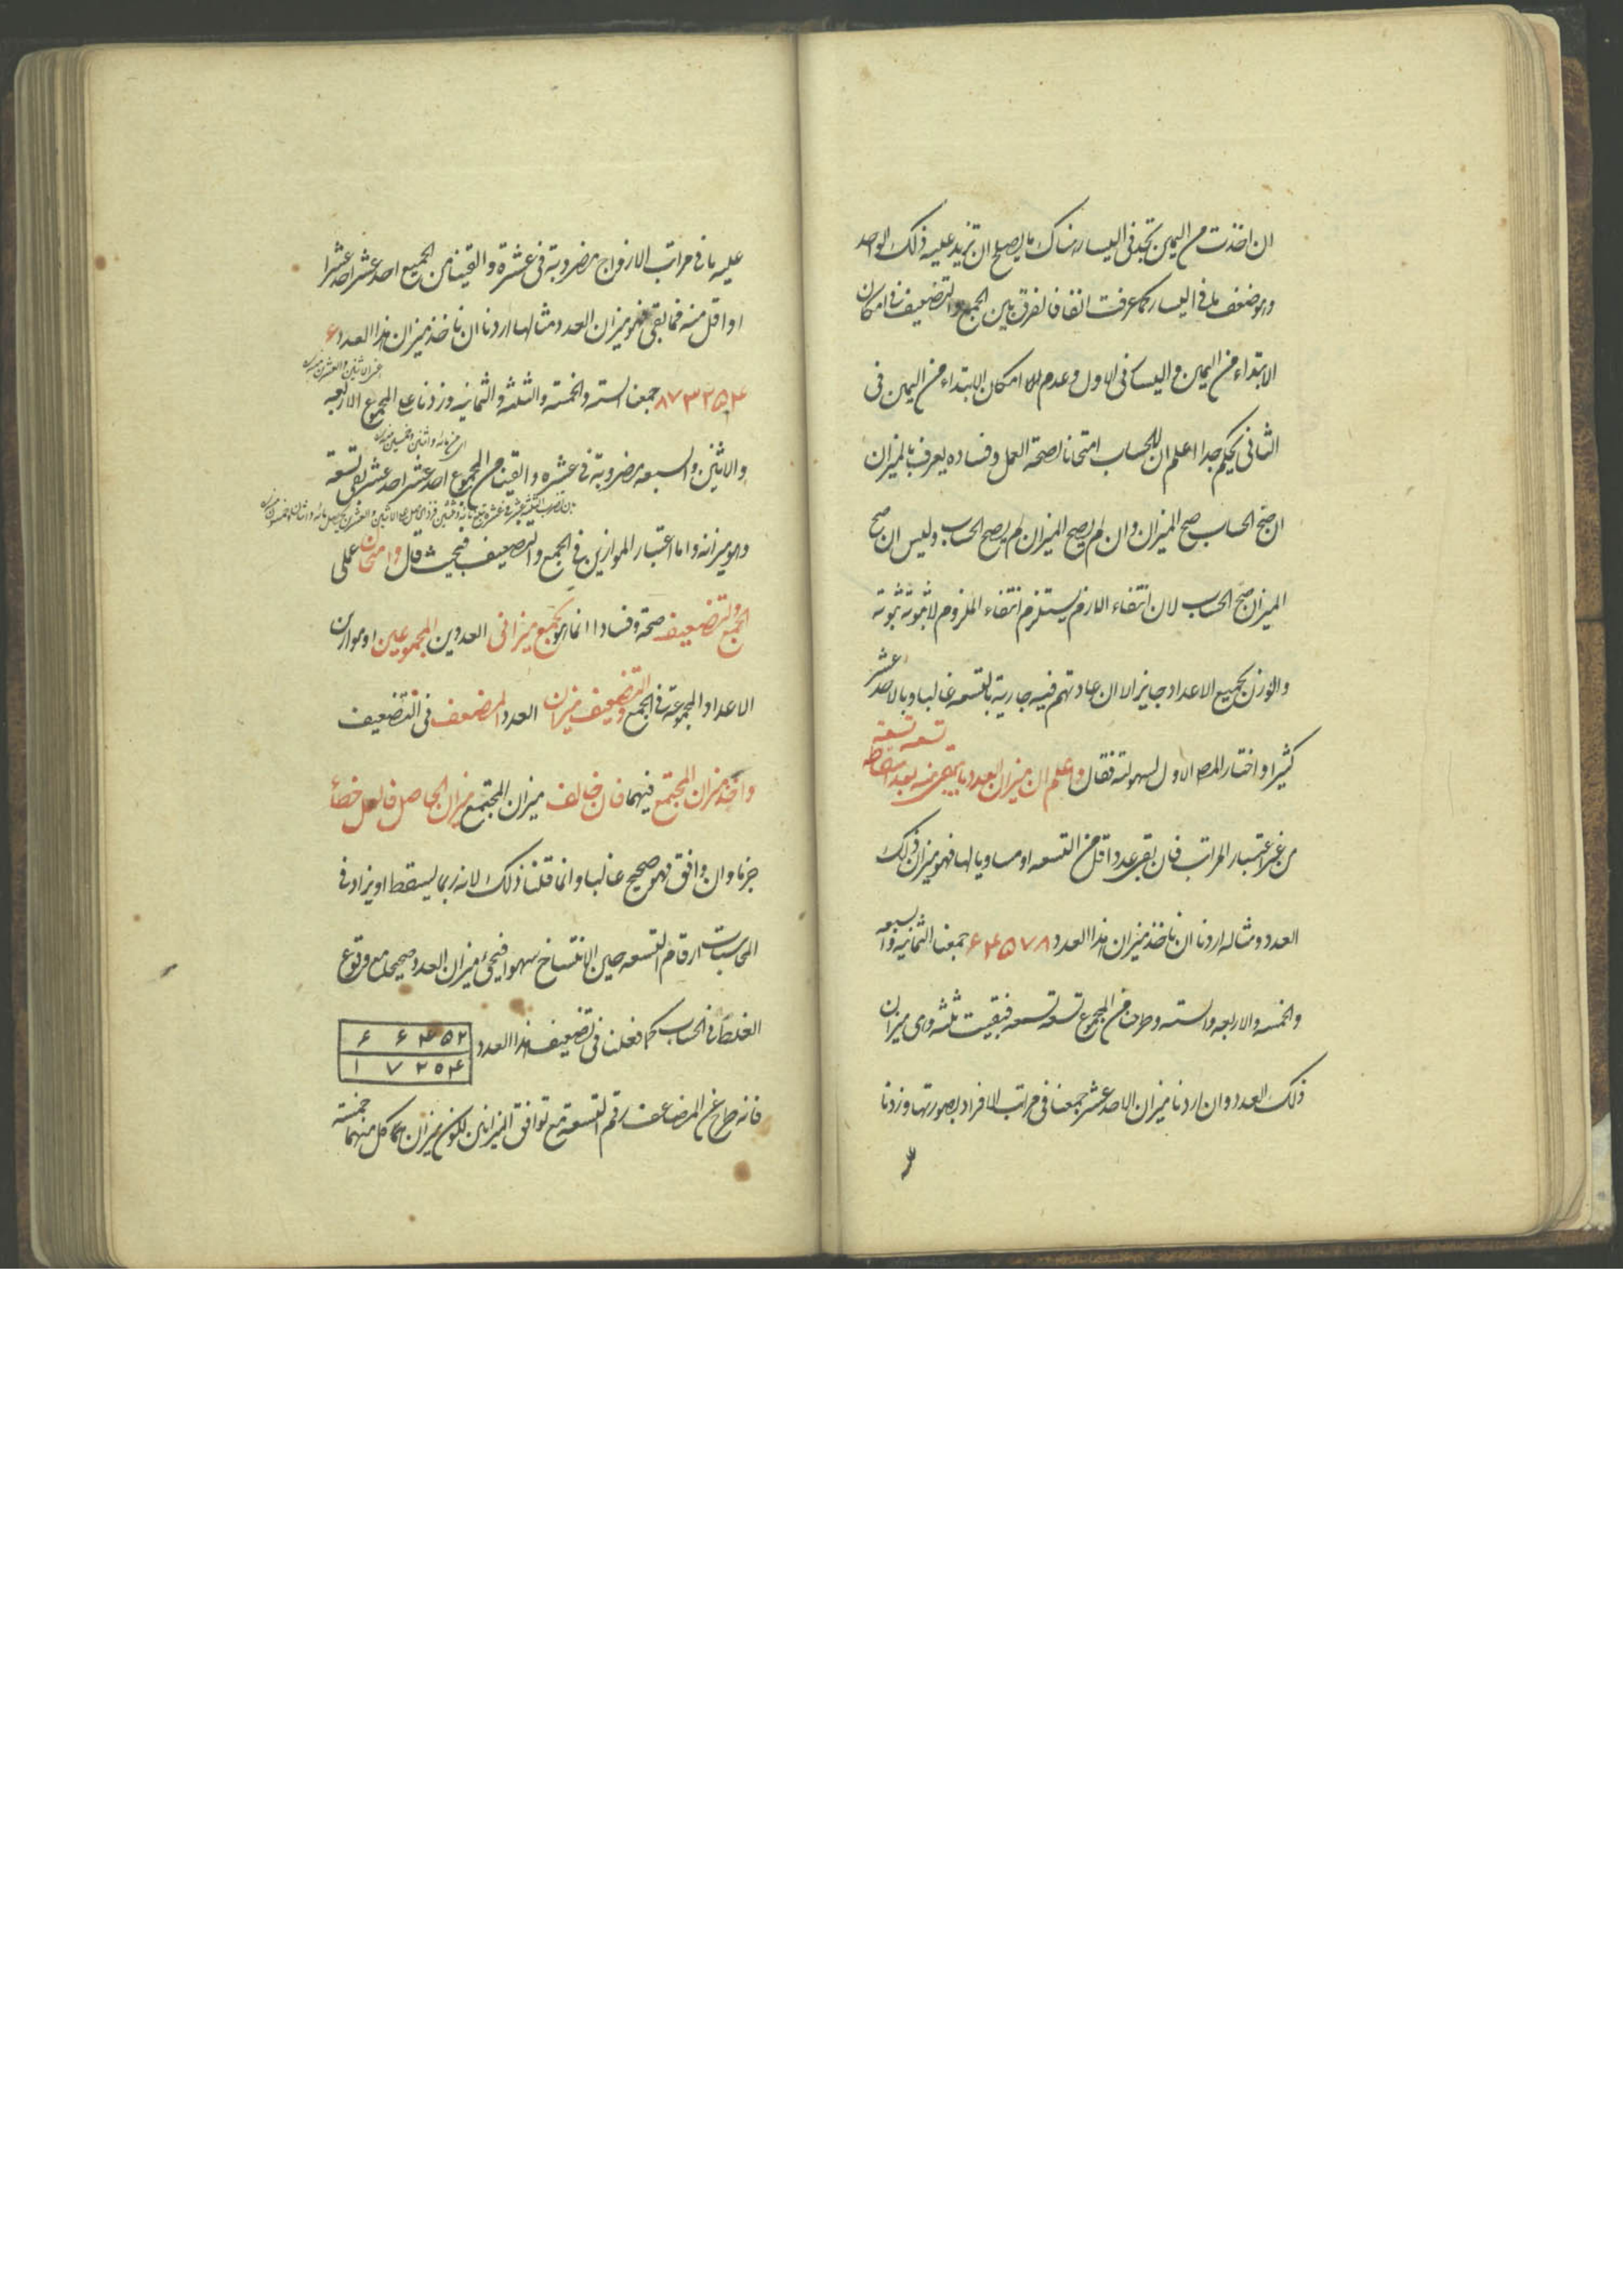 ان اخذت من اليمين تجد في اليسار هناك ما يصلح ان تزيد عليه ذلك الواحد
وهو ضعف ما في اليسار كما عرفت انفا فالفرق بين الجمع والتضعيف في امكان
الابتداء من اليمين واليسار في الاول وعدم امكان الابتداء من اليمين في
الثاني تحكم جدا اعلم ان للحساب امتحانا لصحة العمل وفساده يعرف بالميزان
ان صح الحساب صح الميزان وان لم يصح الميزان لم يصح الحساب وليس ان صح
الميزان صح الحساب لان انتفاء اللازم يستلزم انتفاء الملزوم لا ثبوته ثبوته
والوزن بجميع الاعداد جايز الا ان عادتهم فيه جارية بالتسعه غالبا وبالاحد عشر
كثيرا واختار المص الاول لسهولته فقال واعلم ان ميزان العدد ما يبقى منه بعد اسقاطه تسعه تسعه
من غير اعتبار المراتب فان بقى عدد اقل من التسعه او مساويا لها فهو ميزان ذلك
العدد ومثاله اردنا ان ناخذ ميزان هذا العدد ۶۴۵۷۸ جمعنا الثمانيه والسبعه
والخمسه والاربعه والسته وطرحنا من المجموع تسعه تسعه فبقيت ثلثه وهى ميزان
ذلك العدد وان اردنا ميزان الاحد عشر جمعنا في مراتب الافراد بصورتها وزدنا
عليه ما في مراتب الازواج مضروبة في عشرة والقينا من الجميع احد عشر احد عشر
او اقل منه فما بقى فهو ميزان العدد مثالها اردنا ان ناخذ ميزان هذا العدد ۶
۸۷۳۲۵۴ جمعنا السته والخمسه والثلثه والثمانيه وزدنا على المجموع الاربعه
والاثنين والسبعه مضروبة في عشره والقينا من المجموع احد عشر احد عشر بقى تسعة
وهو ميزانه واما اعتبار الموازين في الجمع والتضعيف فبحيث قال وامتحان على
الجمع والتضعيف صحة وفسادا انما هو بجمع ميزاني العددين المجموعين او موازين
الاعداد المجموعة في الجمع وتضعيف ميزان العدد المضعف في التضعيف
واخذ ميزان المجتمع فيهما فان خالف ميزان المجتمع ميزان الحاصل فالعمل خطأ
جزما وان وافق فهو صحيح غالبا وانما قلنا ذلك لانه ربما يسقط او يزاد في
المحاسبات ارقام التسعه حين الانتساخ سهوا فيجيء ميزان العدد صحيحا مع وقوع
الغلط في الحساب كما فعلنا في تضعيف هذا العدد
۶ ۶ ۴ ۵ ۲
۱ ۷ ۲ ۵ ۴
فانه طرح عن المضاعف رقم التسعة مع توافق الميزانين لكون ميزان كل منهما خمسة